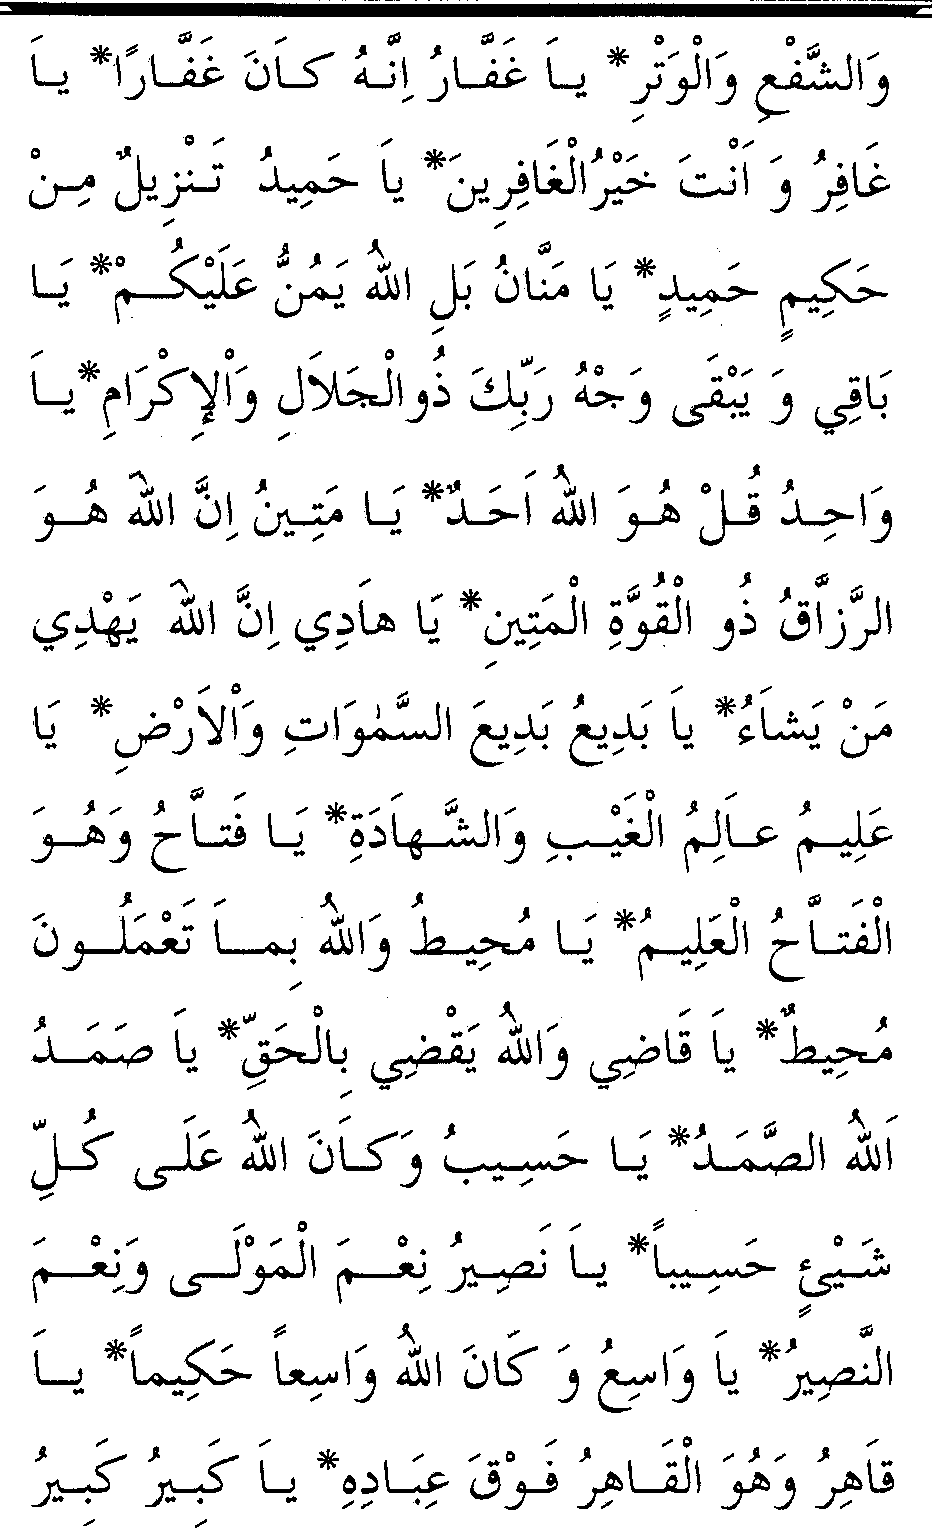 وَالشَّفْعِ وَالْوَتْرِ * ياَ غَفَّارُ اِنَّهُ كاَنَ غَفَّارًا * ياَ
غَافِرُ وَ اَنْتَ خَيْرُالْغَافِرِينَ * ياَ حَمِيدُ تَنْزِيلٌ مِنْ
حَكِيمٍ حَمِيدٍ * يَا مَنَّانُ بَلِ اللهُ يَمُنُّ عَلَيْكُمْ * يَا
بَاقِي وَ يَبْقَى وَجْهُ رَبِّكَ ذُوالْجَلاَلِ وَاْلإِكْرَامِ * ياَ
وَاحِدُ قُلْ هُوَ اللهُ اَحَدٌ * يَا مَتِينُ اِنَّ اللهَ هُوَ
الرَّزَّاقُ ذُو الْقُوَّةِ الْمَتِينِ * يَا هاَدِي اِنَّ اللهَ يَهْدِي
مَنْ يَشاَءُ * ياَ بَدِيعُ بَدِيعَ السَّمٰوَاتِ وَاْلاَرْضِ * يَا
عَلِيمُ عاَلِمُ الْغَيْبِ وَالشَّهاَدَةِ * يَا فَتاَّحُ وَهُوَ
الْفَتاَّحُ الْعَلِيمُ * يَا مُحِيطُ وَاللهُ بِماَ تَعْمَلُونَ
مُحِيطٌ * ياَ قَاضِي وَاللهُ يَقْضِي بِالْحَقِّ * ياَ صَمَدُ
اَللهُ الصَّمَدُ * يَا حَسِيبُ وَكاَنَ اللهُ عَلَى كُلِّ
شَيْئٍ حَسِيباً * ياَ نَصِيرُ نِعْمَ الْمَوْلَى وَنِعْمَ
النَّصِيرُ * ياَ وَاسِعُ وَ كَانَ اللهُ وَاسِعاً حَكِيماً * ياَ
قاَهِرُ وَهُوَ الْقاَهِرُ فَوْقَ عِبَادِهِ * ياَ كَبِيرُ كَبِيرُ